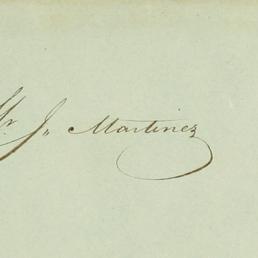 Mr J,, Martinez